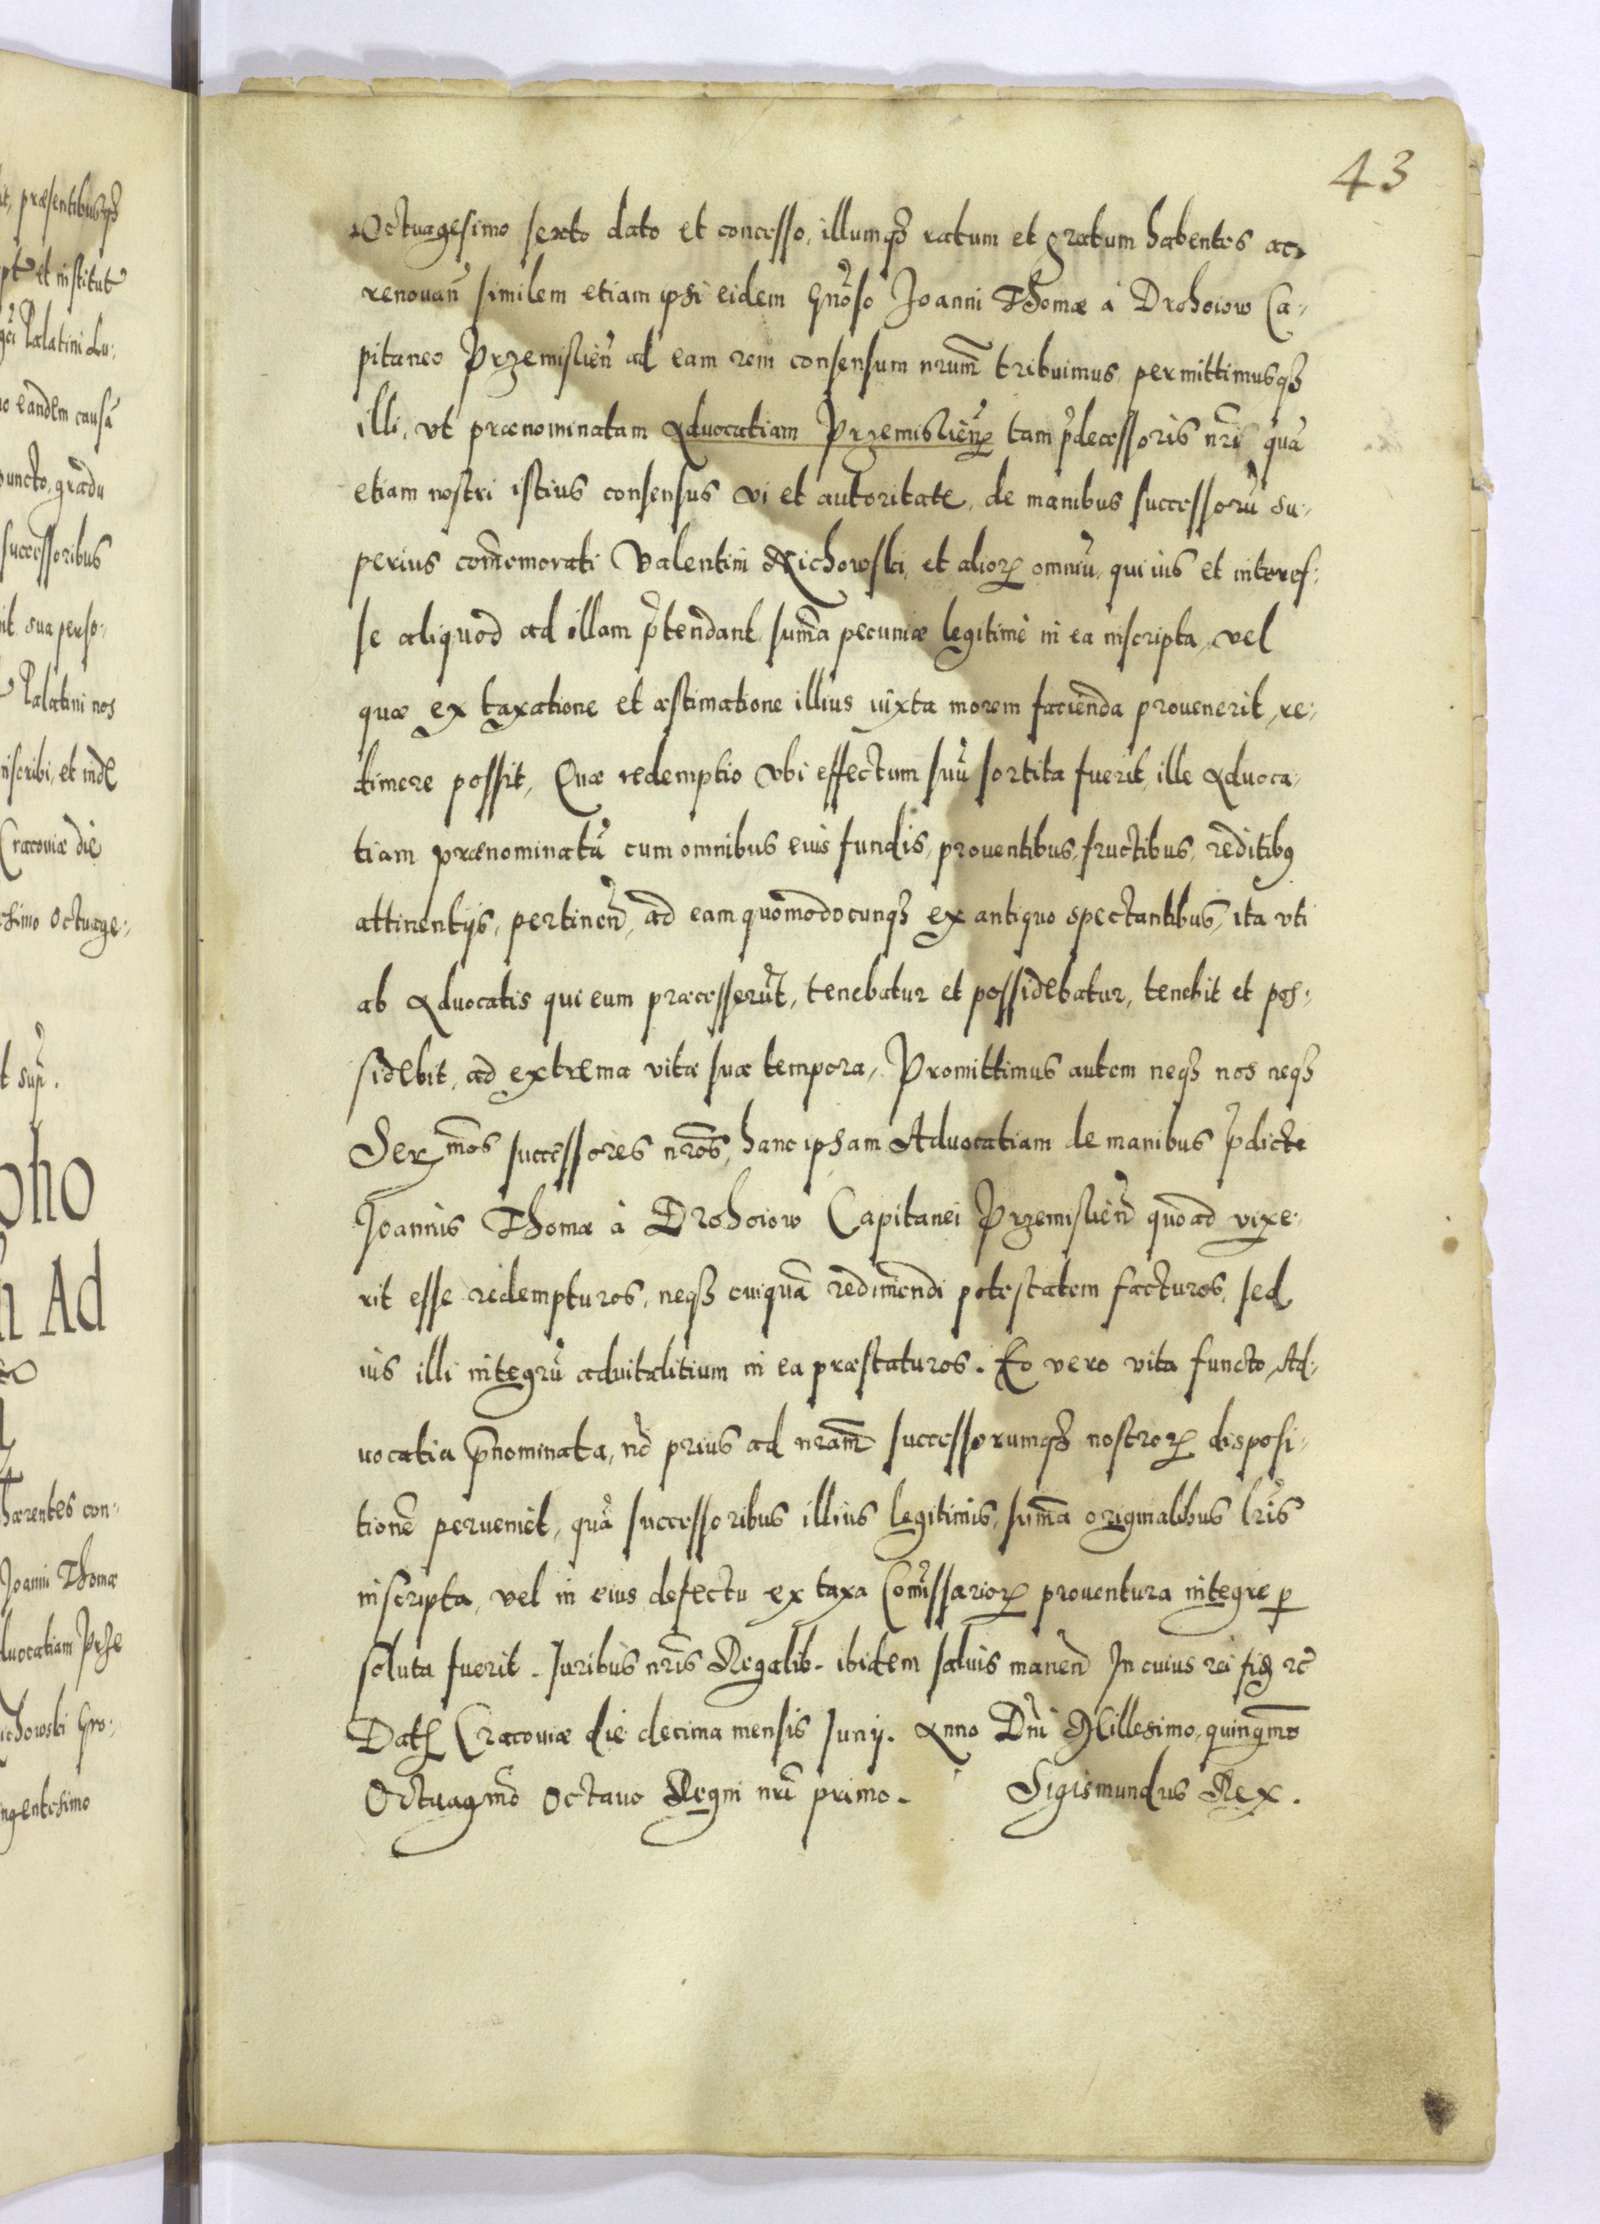 43
Octuagesimo sexto dato et concesso, illumqȝ ratum et gratum habentes ac
renouan̄ similem etiam ipsi eidem Gn̄oso Joanni Thomæ à Drohoiow Ca-
pitaneo Przemislien̄ ad eam rem consensum nrum̄ tribuimus, permittimusqȝ
illi, vt prænominatam Aduocatiam Przemislien̄ tam p̄decessoris nr̄i quā
etiam nostri istius consensus vi et autoritate, de manibus successorū su-
perius com̄emorati Valentini Richowski, et alior omniū, qui ius et interes-
se aliquod ad illam p̄tendant, sum̄a pecuniæ legitimè in ea inscripta, vel
quæ ex taxatione et æstimatione illius iuxta morem facienda prouenerit, re-
dimere possit, Quæ redemptio vbi effectum suū sortita fuerit, ille Aduoca-
tiam prænominatā cum omnibus eius fundis, prouentibus, fructibus, reditibus
attinentijs, pertinen̄, ad eam quomodocunqȝ ex antiquo spectantibus, ita vti
ab Aduocatis qui eum præcesserūt, tenebatur et possidebatur, tenebit et pos-
sidebit, ad extrema vitæ suæ tempora, Promittimus autem neqȝ nos neqȝ
Ser mos successores nr̄os, hanc ipsam Aduocatiam de manibus p̄dicti
Joannis Thomæ à Drohoiow Capitanei Przemislien̄ quoad vixe-
rit esse redempturos, neqȝ cuiquā redimendi potestatem facturos, sed
ius illi integrū aduitalitium in ea præstaturos. Eo vero vita functo, Ad-
uocatia p̄nominata, nō prius ad nram̄ successorumqȝ nostror disposi-
tionē perueniet, quā successoribus illius legitimis, sum̄a originalibus lr̄is
inscripta, vel in eius defectu ex taxa Com̄issarior prouentura integre per
soluta fuerit. Iuribus nr̄is Regalib. ibidem saluis manen̄ In cuius rei fid rc̄
Dat Cracouiæ die decima mensis Junij. Anno Dn̄i Millesimo, quingmo
Octuagmo Octauo Regni nr̄i primo. Sigismundus Rex.